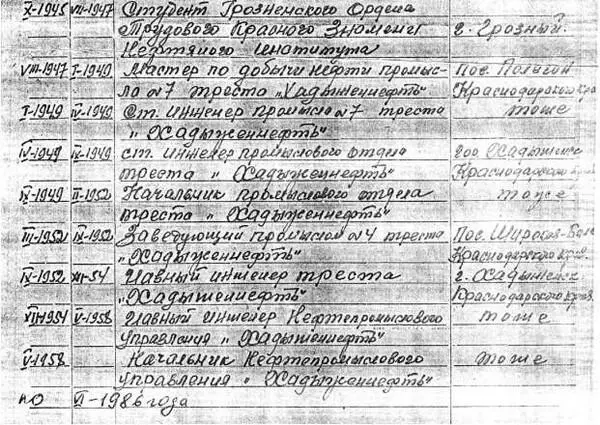 X-1945 VII-1947 Студент Грозненского Ордена
Трудового Красного Знамени г. Грозный.
Нефтяного Института
VIII-1947 I-1949 Мастер по добычи нефти промыс- пос. Полигон
ла №7 треста "Хадыженнефть" Краснодарского края
I-1949 IV-1949 Ст. инженер промысла №7 треста тоже
"Хадыженнефть"
IV-1949 IX-1949 ст. инженер промыслового отдела гор Хадыженск
треста "Хадыженнефть" Краснодарского края
IX-1949 II-1952 Начальник промыслового отдела тоже
треста "Хадыженнефть"
III-1952 IX-1952 Заведующий промыслом №4 треста Пос. Широкая
"Хадыженнефть" Краснодарского края
IX-1952 XII-54 Главный инженер треста г. Хадыженск
"Хадыженнефть" Краснодарского края.
XII-1954 V-1958 Главный инженер Нефтепромыслового тоже
управления "Хадыженнефть"
V-1958 Начальник Нефтепромыслового тоже
управления "Хадыженнефть"
по II-1986 года